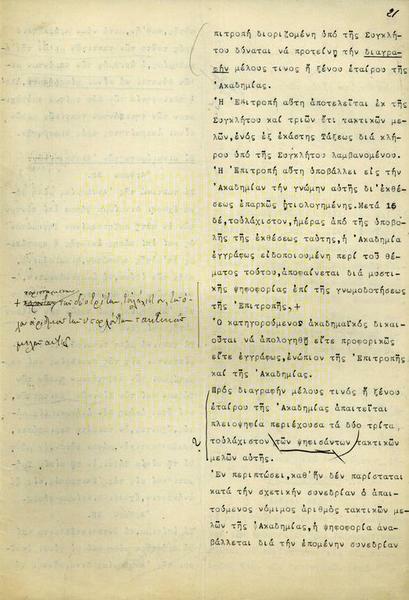 21
πιτροπή διοριζομένη ὑπό τῆς Συγκλή-
του δύναται νά προτείνῃ τήν διαγρα-
φήν μέλους τινος ἤ ξένου ἑταίρου τῆς
Ἀκαδημίας.
Ἡ Ἐπιτροπή αὕτη ἀποτελεῖται ἐκ τῆς
Συγκλήτου καί τριῶν ἔτι τακτικῶν με-
λῶν, ἑνός ἐξ ἑκάστης Τάξεως διά κλή-
ρου ὑπό τῆς Συγκλήτου λαμβανομένου.
Ἡ Ἐπιτροπή αὕτη ὑποβάλλει εἰς τήν
Ἀκαδημίαν τήν γνώμην αὐτῆς δι'ἐκθέ-
σεως ἐπαρκῶς ᾐτιολογημένης. Μετά 15
δέ, τοὐλάχιστον, ἡμέρας ἀπό τῆς ὑποβο-
λῆς τῆς ἐκθέσεως ταύτης, ἡ Ἀκαδημία
ἐγγράφως εἰδοποιουμένη περί τοῦ θέ-
ματος τούτου, ἀποφαίνεται διά μυστι-
κῆς ψηφοφορίας ἐπί τῆς γνωμοδοτήσεως
τῆς Ἐπιτροπῆς, +
+ τῶν δύο τρίτων τοὐλάχιστον τοῦ ὅ-
τακτικῶν
μελῶν αὐτῆς
Ὁ κατηγορούμενος ἀκαδημαϊκός δικαι-
οῦται νά ἀπολογηθῇ εἴτε προφορικῶς
εἴτε ἐγγράφως, ἐνώπιον τῆς Ἐπιτροπῆς
καί τῆς Ἀκαδημίας.
Πρός διαγραφήν μέλους τινός ἤ ξένου
ἑταίρου τῆς Ἀκαδημίας ἀπαιτεῖται
πλειοψηφία περιέχουσα τά δύο τρίτα,
τοὐλάχιστον τῶν ψηφισάντων τακτικῶν
μελῶν αὐτῆς.
Ἐν περιπτώσει, καθ'ἥν δέν παρίσταται
κατά τήν σχετικήν συνεδρίαν ὁ ἀπαι-
τούμενος νόμιμος ἀριθμός τακτικῶν με-
λῶν τῆς Ἀκαδημίας, ἡ ψηφοφορία ἀνα-
βάλλεται διά τήν ἑπομένην συνεδρίαν